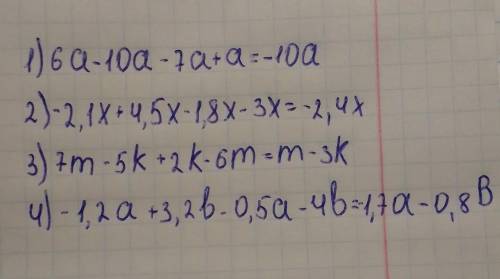 1) 6a-10a-7a+a=-10a
2) -2,1x+4,5x-1,8x-3x=-2,4x
3) 7m-5k+2k-6m=m-3k
4) -1,2a+3,2b-0,5a-4b=-1,7a-0,8B